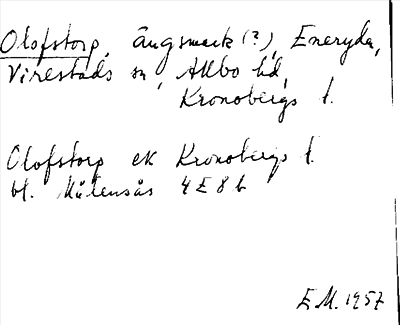 Olofstorp, ängsmark (?), Eneryda,
Virestads sn, Allbo hd,
Kronobergs l.
Olofstorp ek Kronobergs l.
bl. Måtensås 4E8b
E.M. 1957